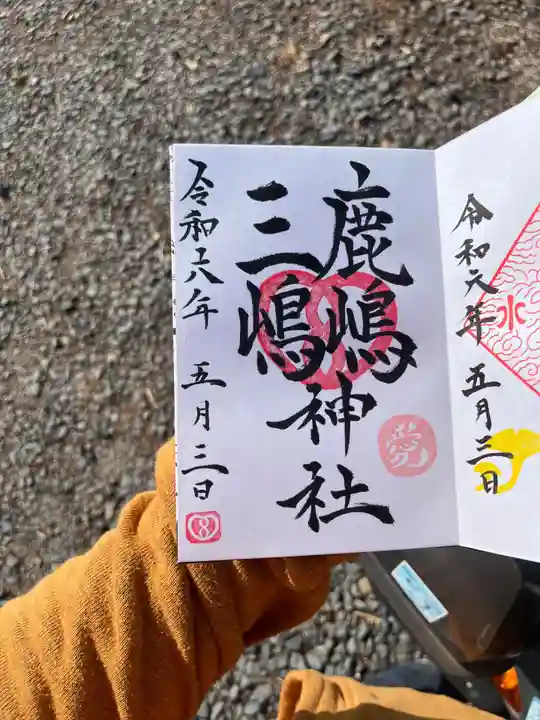 令和六年 五月三日
水
鹿嶋
三嶋
神社
愛
令和六年 五月三日
8